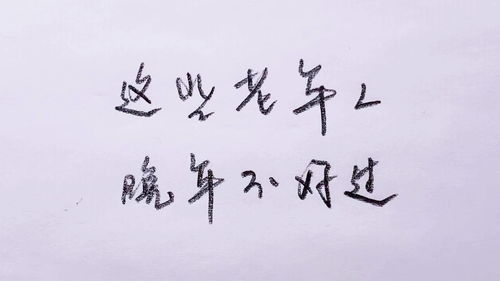 这些老年人
晚年不好过